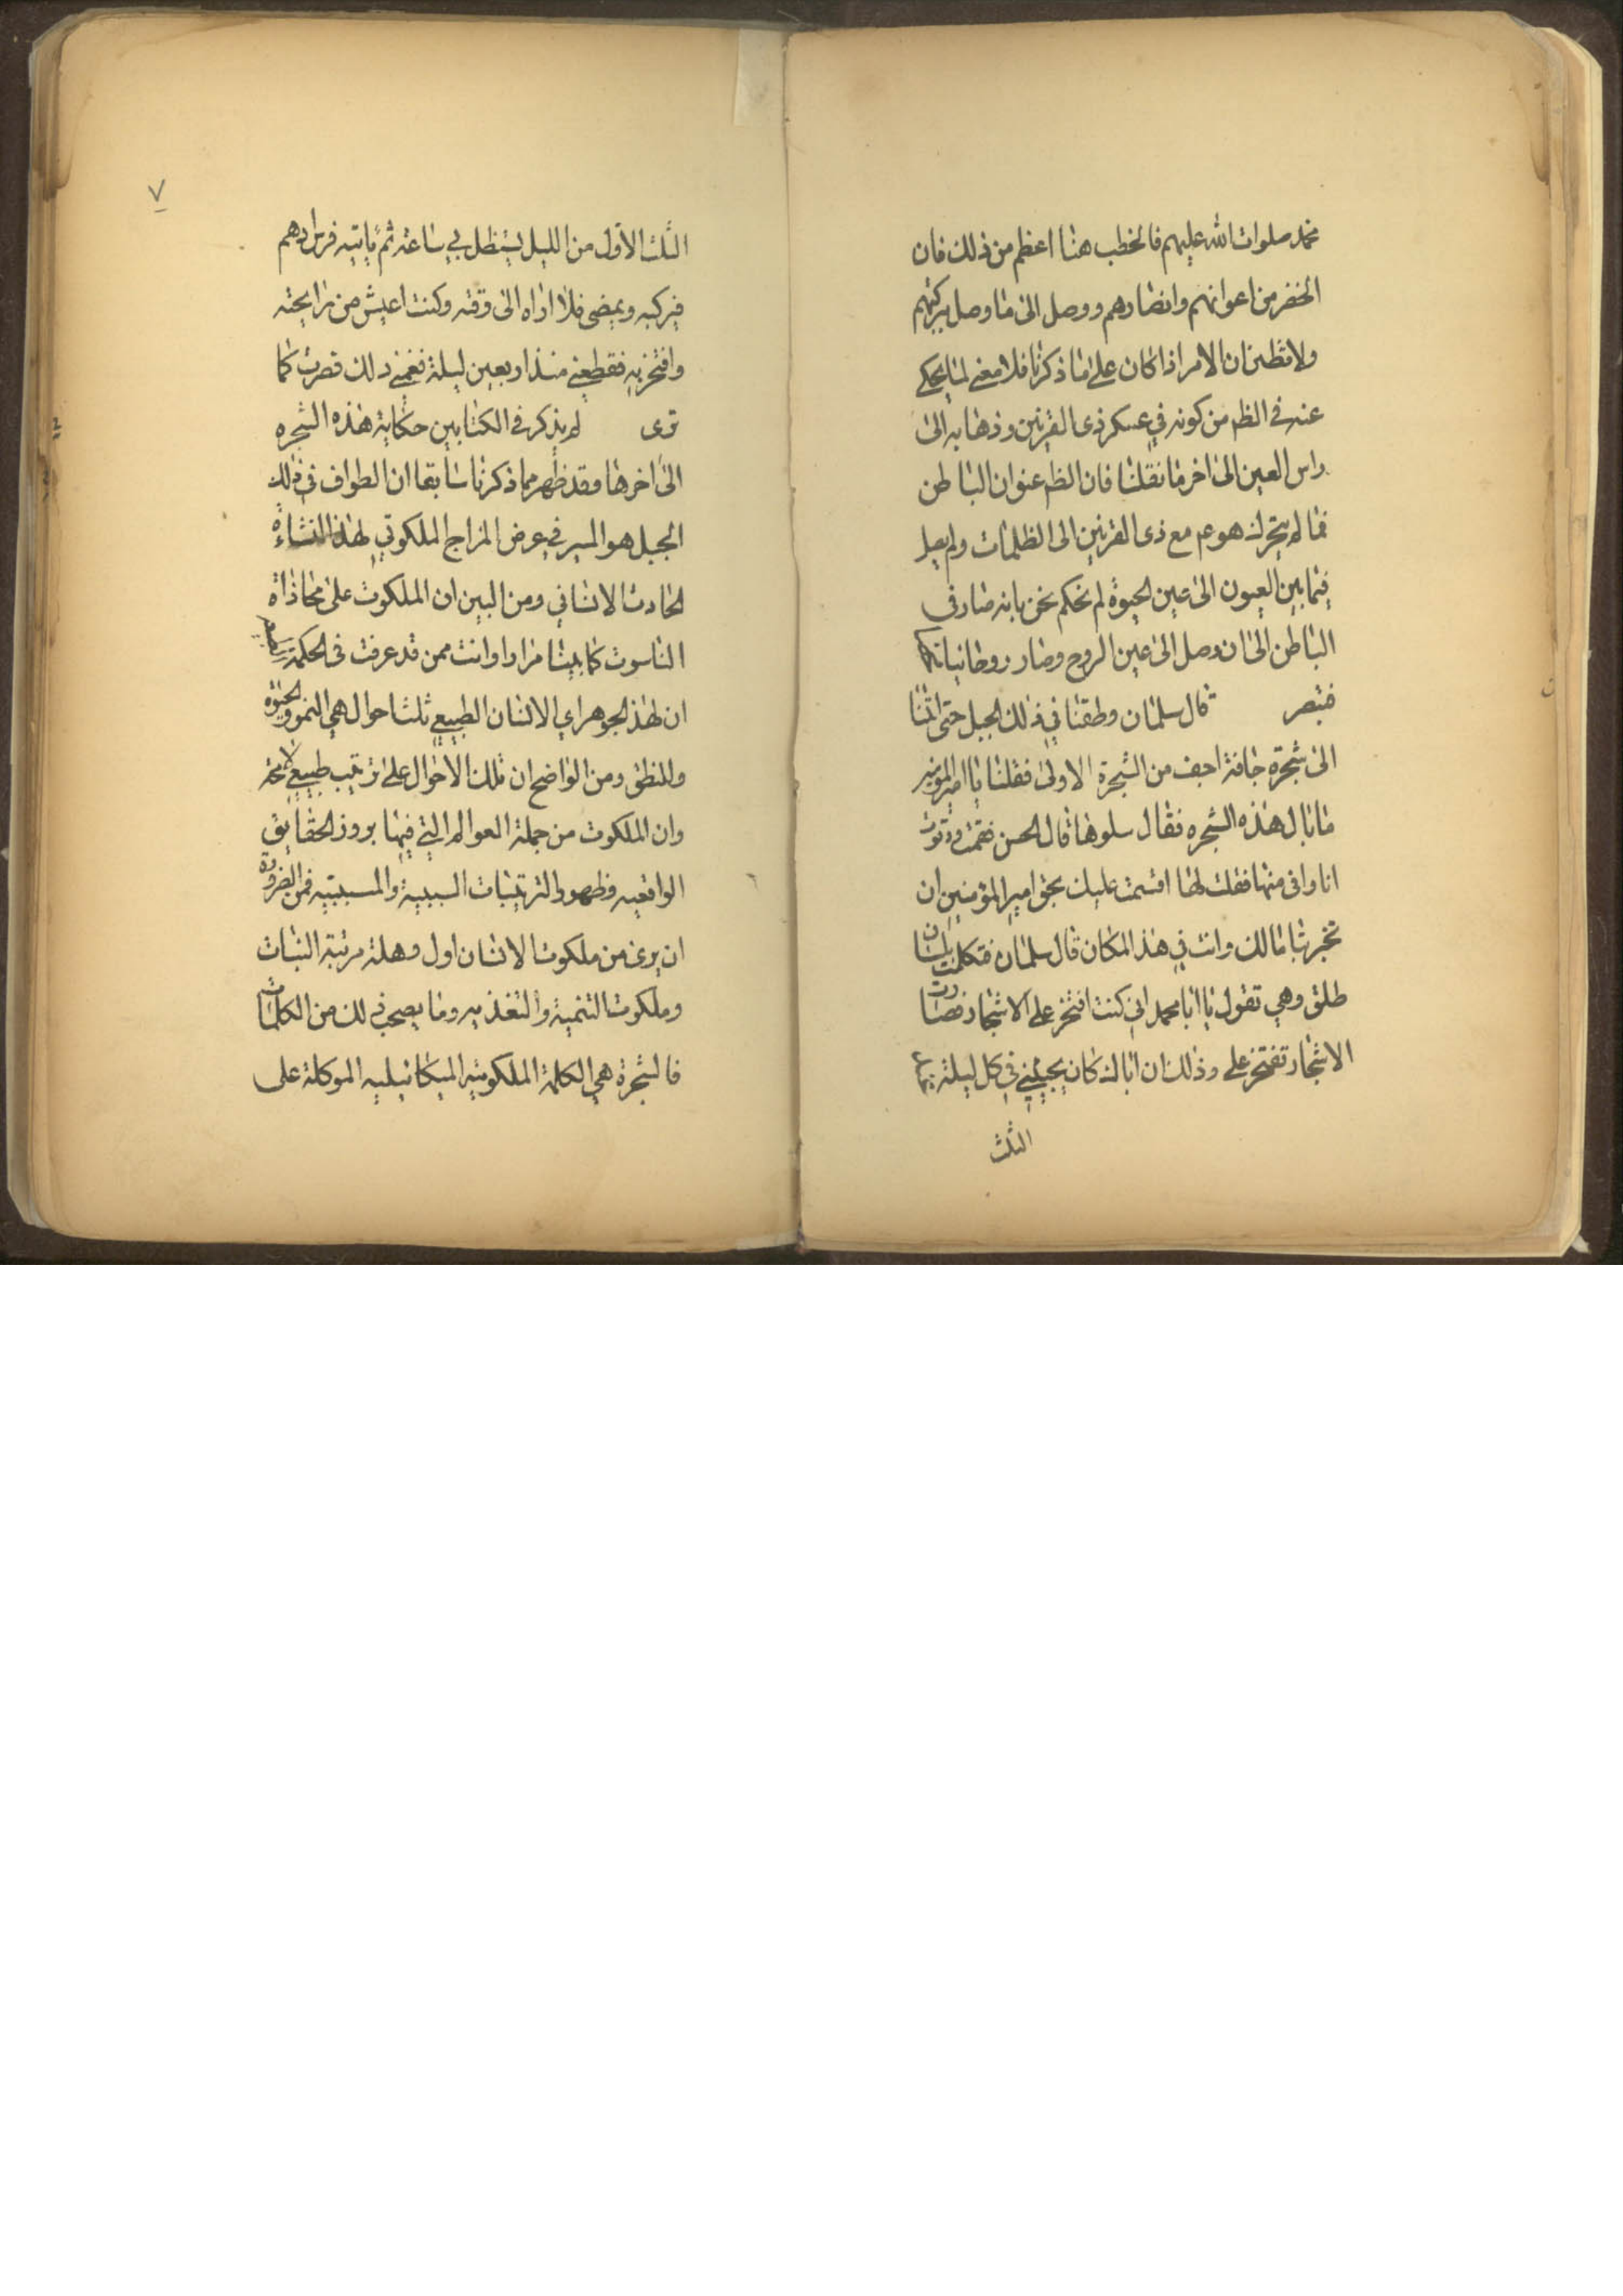 محمد صلوات الله عليهم فالخطب هنا اعظم من ذلك فان
الخضر من اعوانهم وانصارهم ووصل الى ما وصل ببركتهم
ولا تظنن ان الامر اذا كان على ما ذكرنا فلا معنى لما يحكى
عنه في الظم من كونه في عسكر ذى القرنين وذهابه الى
راس العين الى اخر ما نقلنا فان الظم عنوان الباطن
فما لم يتحرك هو عم مع ذى القرنين الى الظلمات ولم يصل
فيما بين العيون الى عين الحيوة لم نحكم نحن بانه صار في
الباطن الى ان وصل الى عين الروح وصار روحانيا
فتبصر قال سلمان وطفنا في ذلك الجبل حتى اتينا
الى شجرة جافة اجف من الشجرة الاولى فقلنا يا امير المؤمنين
ما بال هذه الشجره فقال سلوها قال الحسن فقمت ودنوت
انا وابى منها فقلت لها اقسمت عليك بحق امير المؤمنين ان
تخبرينا ما لك وانت في هذا المكان قال سلمان فتكلمت بلسان
طلق وهي تقول يا ابا محمد اني كنت افتخر على الاشجار فصارت
الاشجار تفتخر على وذلك ان اباك كان يجيئني في كل ليلة
الثلث
٧
الثلث الاول من الليل يستظل بي ساعة ثم ياتيه فرس ادهم
فيركبه ويمضى فلا اراه الى وقته وكنت اعيش من رايحته
وافتخر به فقطعني منذ اربعين ليلة فغمني ذلك فصرت كما
ترى لم يذكر في الكتابين حكاية هذه الشجره
الى اخرها وقد ظهر مما ذكرنا سابقا ان الطواف في ذلك
الجبل هو السير في عرض المزاج الملكوتي لهذا النشاءة
الحادث الانساني ومن البين ان الملكوت على محاذاة
الناسوت كما بينا مرارا وانت ممن قد عرفت في الحكمة
ان لهذ الجوهر اي الانسان الطبيعي ثلث احوال هي النمو والحيوة
والنطق ومن الواضح ان تلك الاحوال على ترتيب طبيعي
وان الملكوت من جملة العوالم التي فيها بروز الحقايق
الواقعيه وظهور الترتيبات السببية والمسببيه فمن الضرورة
ان يرى من ملكوت الانسان اول وهلة مرتبة النبات
وملكوت التنمية والتغذيه وما يصحب ذلك من الكلمات
فالشجرة هي الكلمة الملكوتيه الميكائيليه الموكلة على